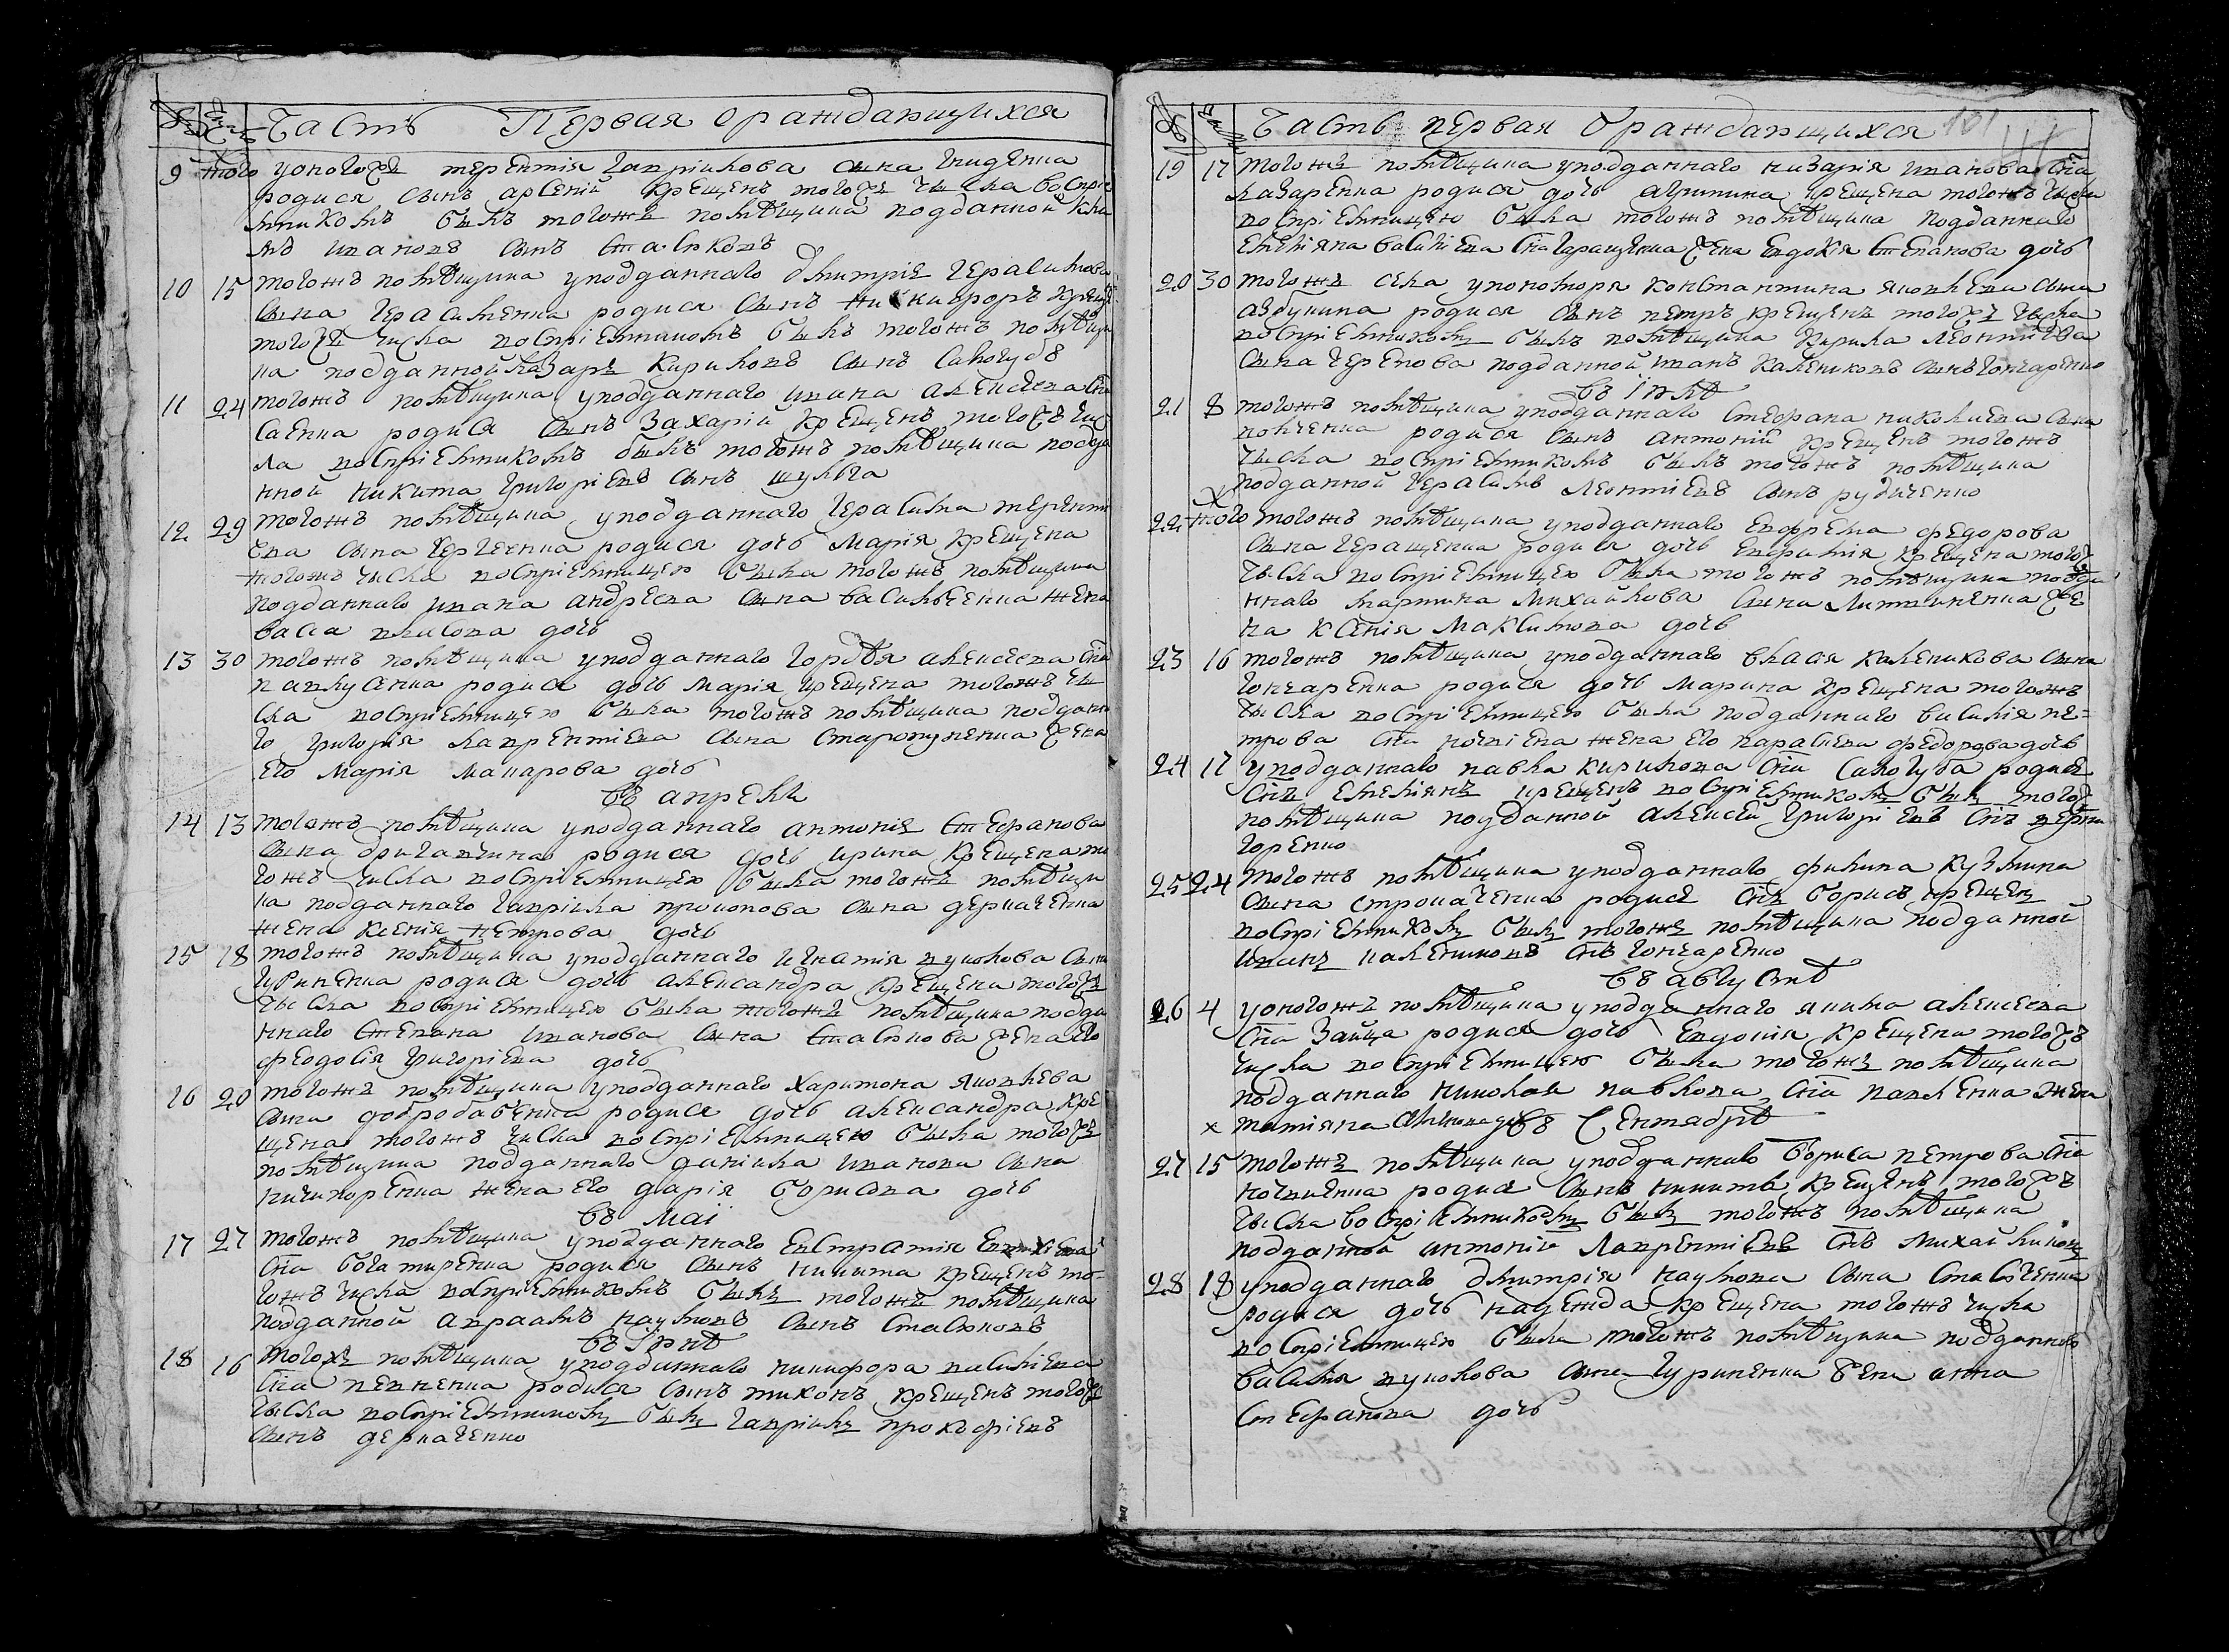 Часть Первая о раждающихся
9 того уоногоже терентия гавриилова сына гниденка
родися сынъ арсений крещенъ тогоже числа воспри
емникомъ былъ тогожъ помѣщика подданной
иванов сынъ стасюковъ
10 15 тогожъ помѣщика уподданнаго дмитрия герасимова
сына герасименка родися сынъ никифоръ крещен
тогоже числа восприемникомъ былъ тогожъ помѣщи
ка подданной лазаръ кириловъ сынъ саногубъ
11 24 тогожъ помѣщика уподданнаго ивана алексеева сна
саенка родися сынъ захарий крещенъ тогожъ чис
ла восприемникомъ былъ тогожъ помѣщика подда
нной никита григориевъ сынъ шулга
12 29 тогожъ помѣщика уподданнаго герасима терентие
ева сына родися дочь мария крещена
тогожъ числа восприемницею была тогожъ помѣщика
подданнаго ивана андреева сына василченка жена
васса власова дочь
13 30 тогожъ помѣщика уподданнаго гордѣя алексеева сна
павлусенка родися дочь мария крещена тогожъ чи
сла восприемницею была тогожъ помѣщика подданна
го григория лаврентиева сына жена
его мария макарова дочь
въ апрелѣ
14 13 тогожъ помѣщика уподданнаго антония стефанова
сына родися дочь ирина крещена то
гожъ числа восприемницею была тогожъ помѣщи
ка подданнаго гавриила прокопова сына деркаченка
жена ксения петрова дочь
15 18 тогожъ помѣщика уподданнаго игнатия вуколова сына
гуриненка родися дочь александра крещена тогоже
числа восприемницею была тогожъ помѣщика подда
ннаго степана иванова сына стасюкова жена его
феодосия григориева дочь
16 20 тогожъ помѣщика уподданнаго харитона яковлева
сына родися дочь александра кре
щена тогожъ числа восприемницею была тогоже
помѣщика подданнаго даниила иванова сына
ничипоренка жена его дария борисова дочь
въ маи
17 27 тогожъ помѣщика уподданнаго евстратия
сна богатиренка родися сынъ никита крещенъ то-
гожъ числа восприемникомъ былъ тогожъ помѣщика
подданной авраамъ наумовъ сынъ стасюковъ
въ июнѣ
18 16 тогожъ помѣщика уподданнаго никифора василиева
сна певненка родися сынъ тихонъ крещенъ тогоже
числа восприемникомъ былъ гавриилъ прокофиевъ
сынъ деркаченко
Часть первая о раждающихся 101
19 17 тогожъ помѣщика уподданнаго назария иванова сна
лазаренка родися дочь агрипина крещена тогожъ числа
восприемницею была тогожъ помѣщика подданнаго
емелияна василиева сна геращенка жена евдокия степанова дочь
20 30 тогожъ села упономаря константина яковлева сына
родися сынъ петръ крещенъ тогоже числа
восприемникомъ былъ помѣщика кирила леонтиева
сына подданной иванъ калениковъ сынъ гончаренко
въ июлѣ
21 8 тогожъ помѣщика уподданнаго стефана николаева сына
родися сынъ антоний крещенъ тогожъ
числа восприемникомъ былъ тогожъ помѣщика
подданной герасимъ леонтиевъ сынъ рудиченко
22 того тогожъ помѣщика уподданнаго евфрема федорова
сына геращенка родися дочь евфимия крещена тогож
числа восприемницею была тогожъ помѣщика подда
ннаго мартина михайлова сына литвиненка же
на ксения максимова дочь
23 16 тогожъ помѣщика уподданнаго власа каленикова сына
гончаренка родися дочь марина крещена тогожъ
числа восприемницею была подданнаго василия пе=
трова сна жена его параскева федорова дочь
24 17 уподданнаго павла кирилова сна саногуба родися
снъ емелиянъ крещенъ восприемникомъ былъ тогож
помѣщика подданной алексей григориевъ снъ
горенко
25 24 тогожъ помѣщика уподданнаго филипа кузмина
сына родися снъ борисъ крещенъ
восприемникомъ былъ тогожъ помѣщика подданной
иванъ калениковъ снъ гончаренко
въ августѣ
26 4 уоногожъ помѣщика уподданнаго якима алексеева
сна зайца родися дочь евдокия крещена тогожъ
числа восприемницею была тогожъ помѣщика
подданнаго николая павлова сна павленка жена
татияна дочь въ сентябрѣ
27 15 тогожъ помѣщика уподданнаго бориса петрова сна
родися сынъ никита крещенъ тогожъ
числа восприемникомъ былъ тогожъ помѣщика
подданной антоний лаврентиевъ снъ михайликовъ
28 18 уподданнаго дмитрия наумова сына
родися дочь надежда крещена тогожъ числа
восприемницею была тогожъ помѣщика подданнаго
василия вуколова сына гуриненка жена анна
стефанова дочь